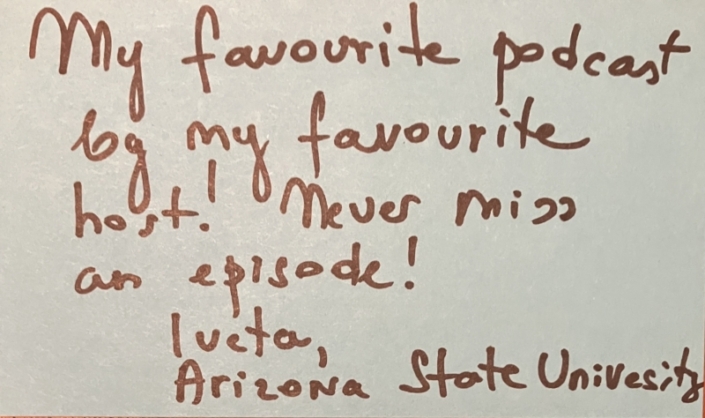 My favourite podcast
by my favourite
host! Never miss
an episode!
Iveta,
Arizona State Univesity